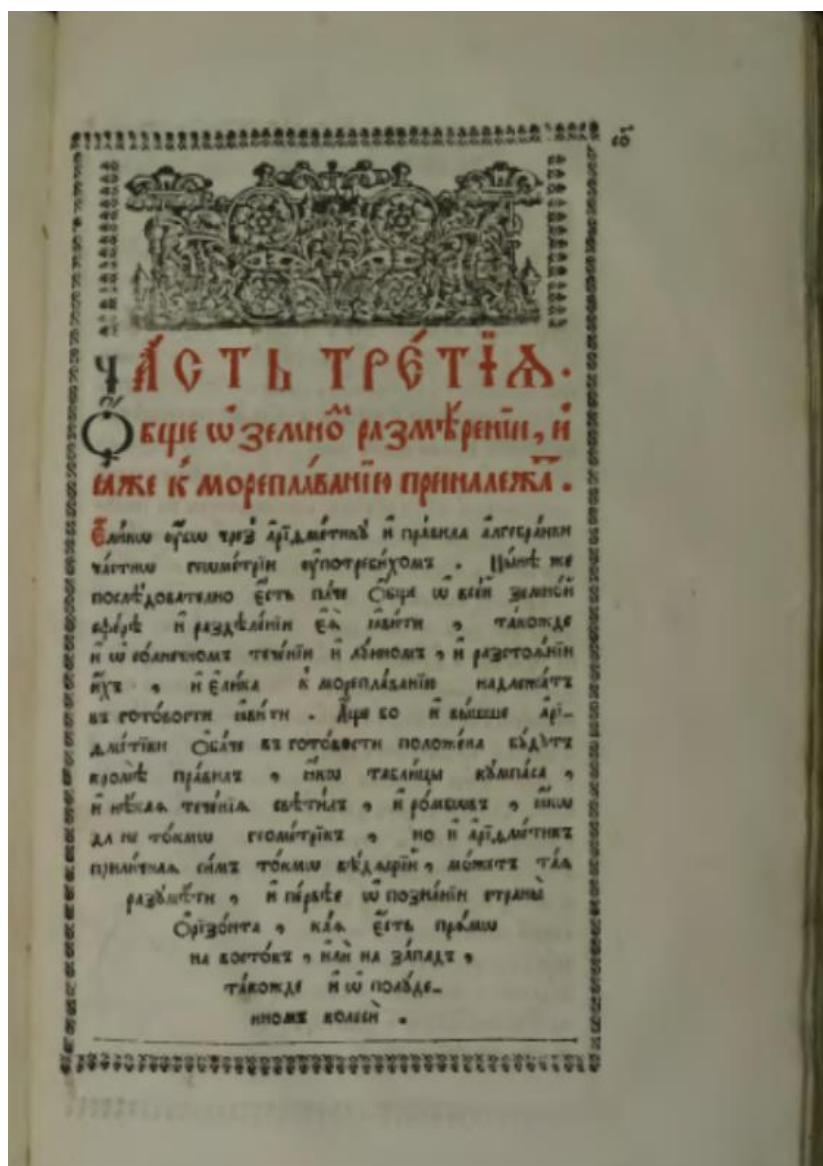 со҃
ЧА́СТЬ ТРЕ́ТЇѦ.
Ѻ҆́бще ѡ҆ земно́мъ размѣ́ренїи, и҆
ꙗ҆́же к̾ морепла́ванїю принадлежа́тъ.
Е҆ли́кѡ ᲂу҆́бѡ чрез̾ а҆рїѳме́тїкꙋ и҆ пра́вила а҆лгебраики
ча́стїю геѡме́трїи ᲂу҆потреби́хомъ . Ны́нѣ же
послѣ́дователно є҆́сть па́че ѻ҆́бще ѡ҆ все́й земно́й
сфе́рѣ и҆ раздѣле́нїи є҆ѧ̀ ꙗ҆ви́ти , та́кожде
и҆ ѡ҆ со́лнечномъ тече́нїи и҆ лꙋ́нномъ , и҆ разстоѧ́нїи
и҆́хъ , и҆ є҆ли́ка к̾ морепла́ванїю надлежа́тъ
въ гото́вости ꙗ҆ви́ти . А҆́ще бо и҆ вы́шше а҆рї-
ѳме́тїки ѻ҆ба́че въ гото́вости положе́на бꙋ́дꙋтъ
кромѣ̀ пра́вилъ , ꙗ҆́кѡ табли́цы кꙋмпа́са ,
и҆ нѣ́каѧ тече́нїѧ свѣти́лъ , и҆ ро́мбѡвъ , ꙗ҆́кѡ
да не то́кмѡ геоме́трїкъ , но и҆ а҆рїѳме́тїкъ
прили́чнаѧ си́мъ то́кмѡ вѣ́дѧщїй , мо́жетъ та̑ѧ
разꙋмѣ́ти , и҆ пе́рвѣе ѡ҆ позна́нїи страны̀
Ѻ҆рїзо́нта , ка́ѧ є҆́сть прѧ́мѡ
на восто́къ , и҆лѝ на за́падъ ,
та́кожде и҆ ѡ҆ полꙋ́де-
нномъ колесѝ .